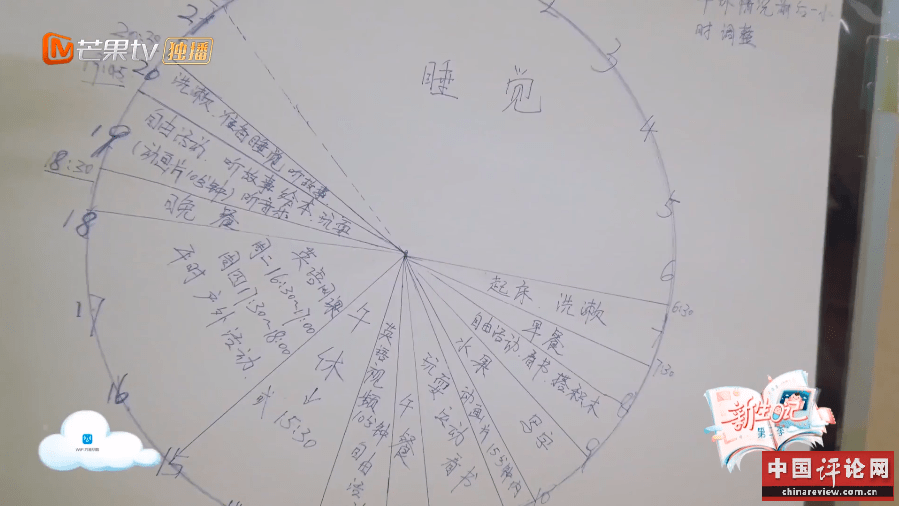 芒果tv 独播
20:30
19:45
21
20
19
18:30
18
17
16
15
2
3
4
5
6
6:30
7
7:30
8
9
10
时调整
睡 觉
洗漱、准备睡觉，听故事
自由活动、听故事、绘本、玩耍
(动画片10分钟)听音乐
晚餐
英语网课
周二16:30~17:00
周四17:30~18:00
平时户外活动
午休
↓
15:30
或
英语视频10分钟
自由活
午餐
玩耍 运动 看书
水果 动画片15分钟内
自由活动、看书、搭积木
早餐
起床 洗漱
新生日记
第三季
中国评论网
chinareview.com